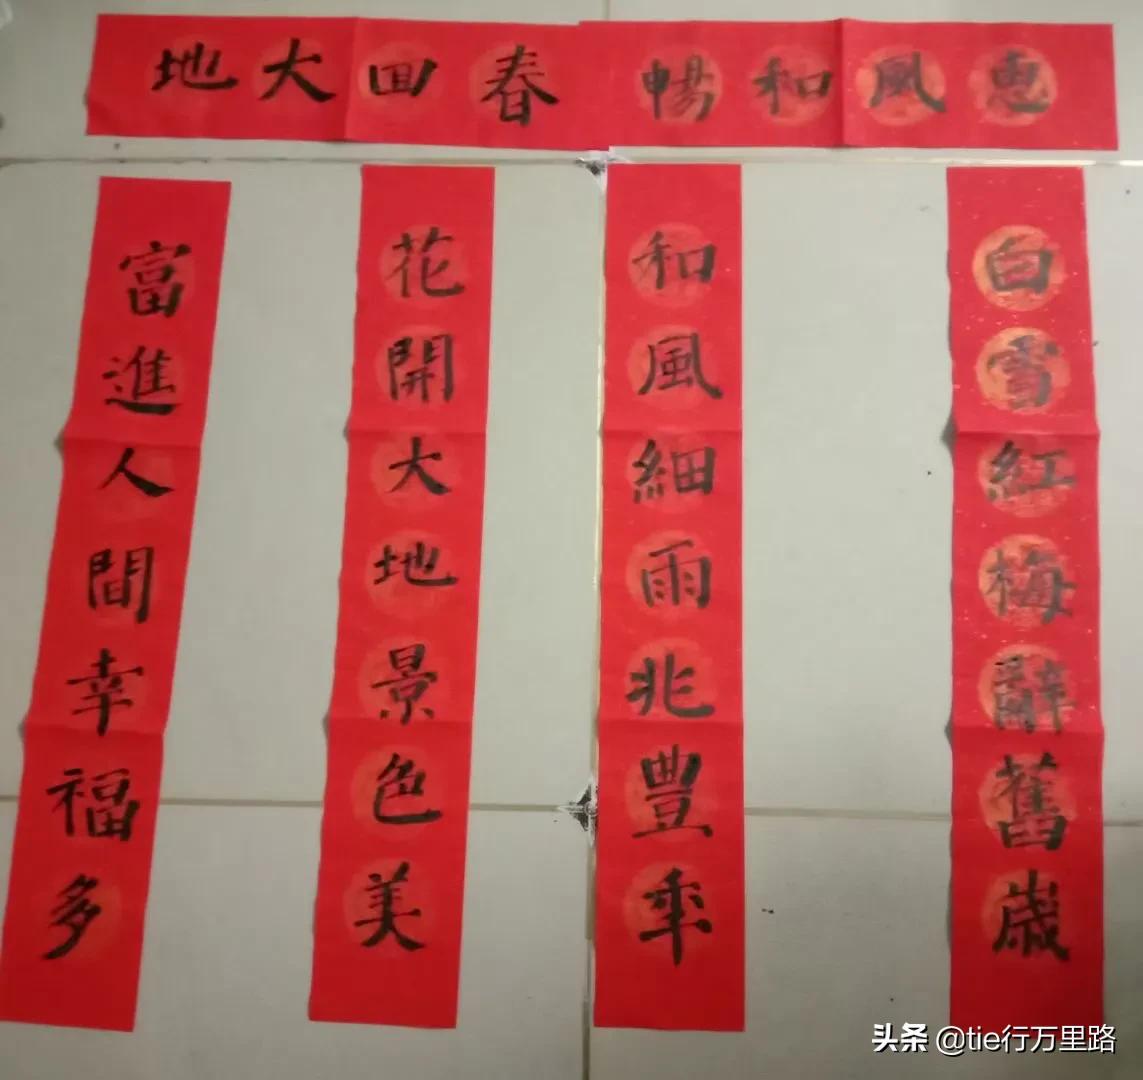 恵風和暢
春回大地
白雪紅梅辭舊歲
和風細雨兆豊年
花開大地景色美
富進人間幸福多
头条 @tie行万里路